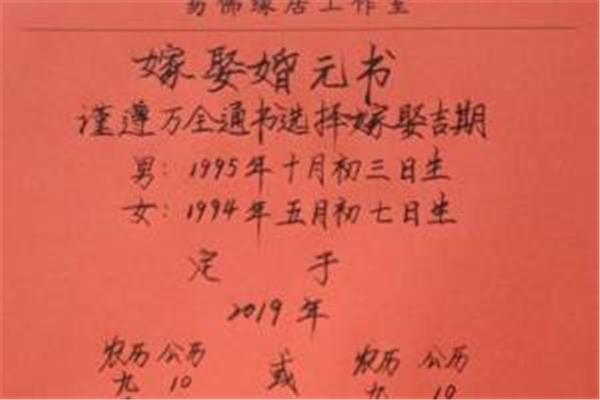 易佛缘居工作室
嫁娶婚元书
谨遵万全通书选择嫁娶吉期
男：1995年十月初三日生
女：1994年五月初七日生
定 于
2019年
农历 公历 或 农历 公历
九 10 九 10